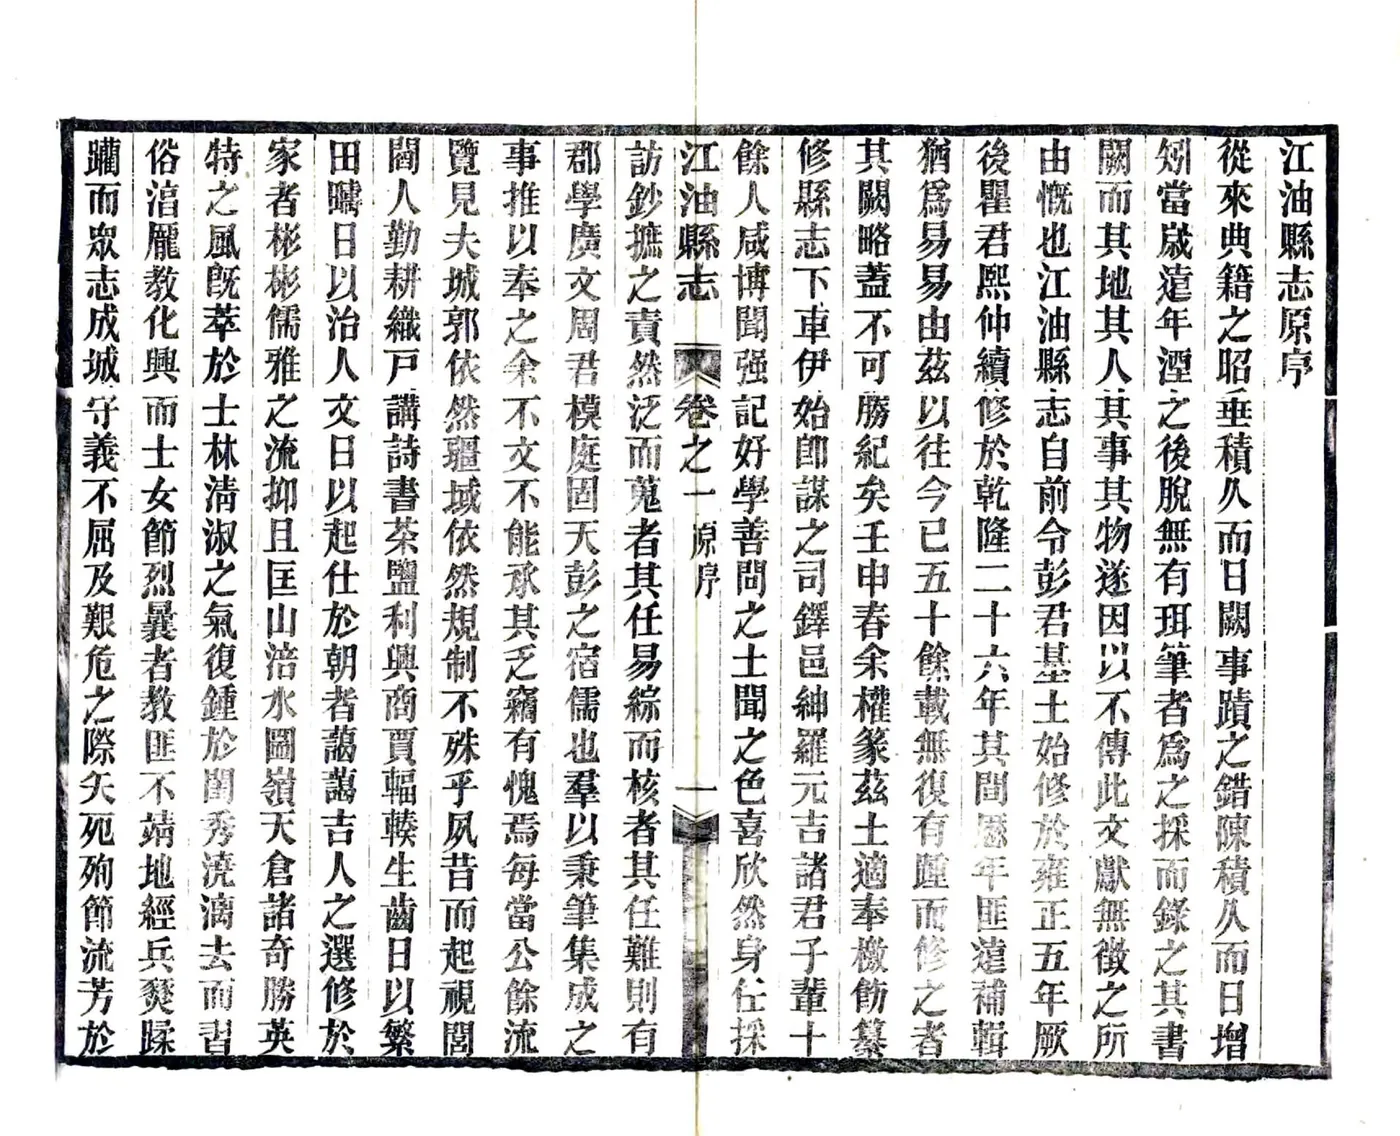 江油縣志原序
從來典籍之昭垂積久而日闕事蹟之錯陳積久而日增
矧當歲遠年湮之後脫無有珥筆者爲之採而錄之其書
闕而其地其人其事其物遂因以不傳此文獻無徵之所
由慨也江油縣志自前令彭君基土始修於雍正五年厥
後瞿君熙仲續修於乾隆二十六年其間歷年匪遠補輯
猶爲易易由茲以往今已五十餘載無復有踵而修之者
其闕略蓋不可勝紀矣壬申春余權篆茲土適奉檄飭纂
修縣志下車伊始卽謀之司鐸邑紳羅元吉諸君子輩十
餘人咸博聞强記好學善問之士聞之色喜欣然身任採
江油縣志 卷之一 原序 一
訪鈔摭之責然泛而蒐者其任易綜而核者其任難則有
郡學廣文周君模庭固天彭之宿儒也羣以秉筆集成之
事推以奉之余不文不能承其乏竊有愧焉每當公餘流
覽見夫城郭依然疆域依然規制不殊乎夙昔而起視閭
閻人勤耕織戸講詩書茶鹽利興商賈輻輳生齒日以繁
田疇日以治人文日以起仕於朝者藹藹吉人之選修於
家者彬彬儒雅之流抑且匡山涪水圖嶺天倉諸奇勝英
特之風旣萃於士林淸淑之氣復鍾於閨秀澆漓去而習
俗湻龐教化興而士女節烈曩者教匪不靖地經兵燹蹂
躪而眾志成城守義不屈及艱危之際矢死殉節流芳於